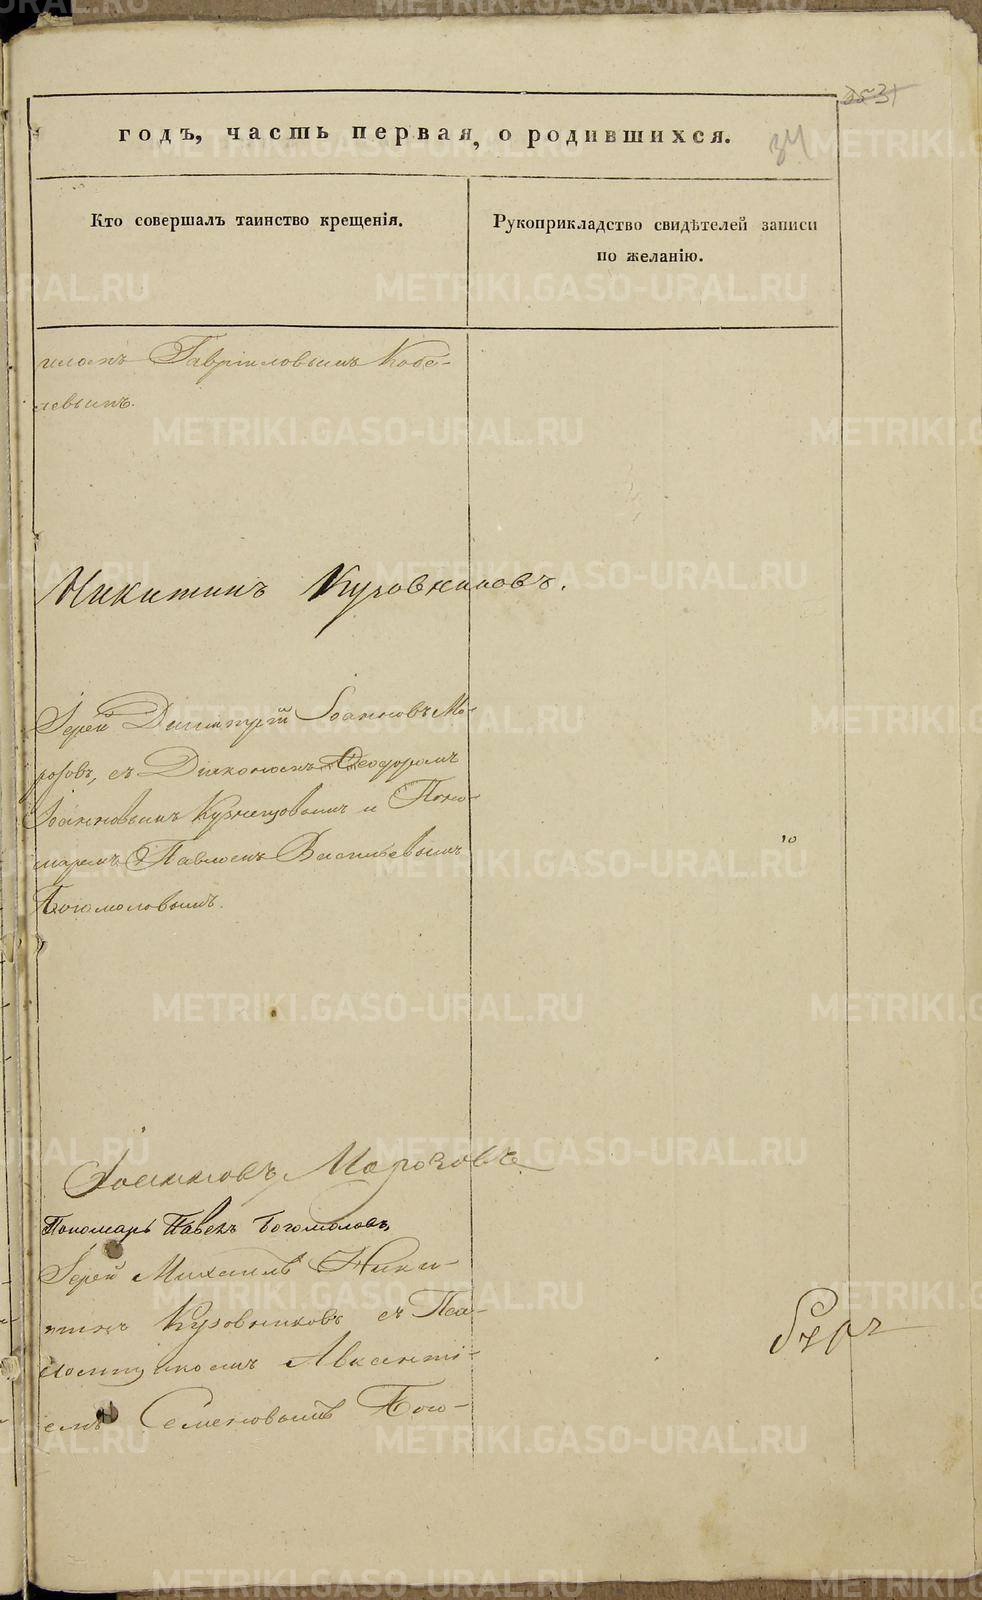 годъ, часть первая, о родившихся.
34
Кто совершалъ таинство крещенія.
Рукоприкладство свидѣтелей записи
по желанію.
Гавріиловымъ Кобе-
левымъ.
Никитинъ Кузовниковъ.
Іерей Димитрій Іоанновъ Мо-
розовъ, съ Діакономъ Ѳеодоромъ
Іоанновымъ Кузнецовымъ и Поно-
маремъ Павломъ Васильевымъ
Богомоловымъ.
Іоанновъ Морозовъ
Пономарь Павелъ Богомоловъ
Іерей Михаилъ Ники-
тинъ Кузовниковъ съ Пса-
ломщикомъ Авксенті-
емъ Семеновымъ Бого-
METRIKI.GASO-URAL.RU